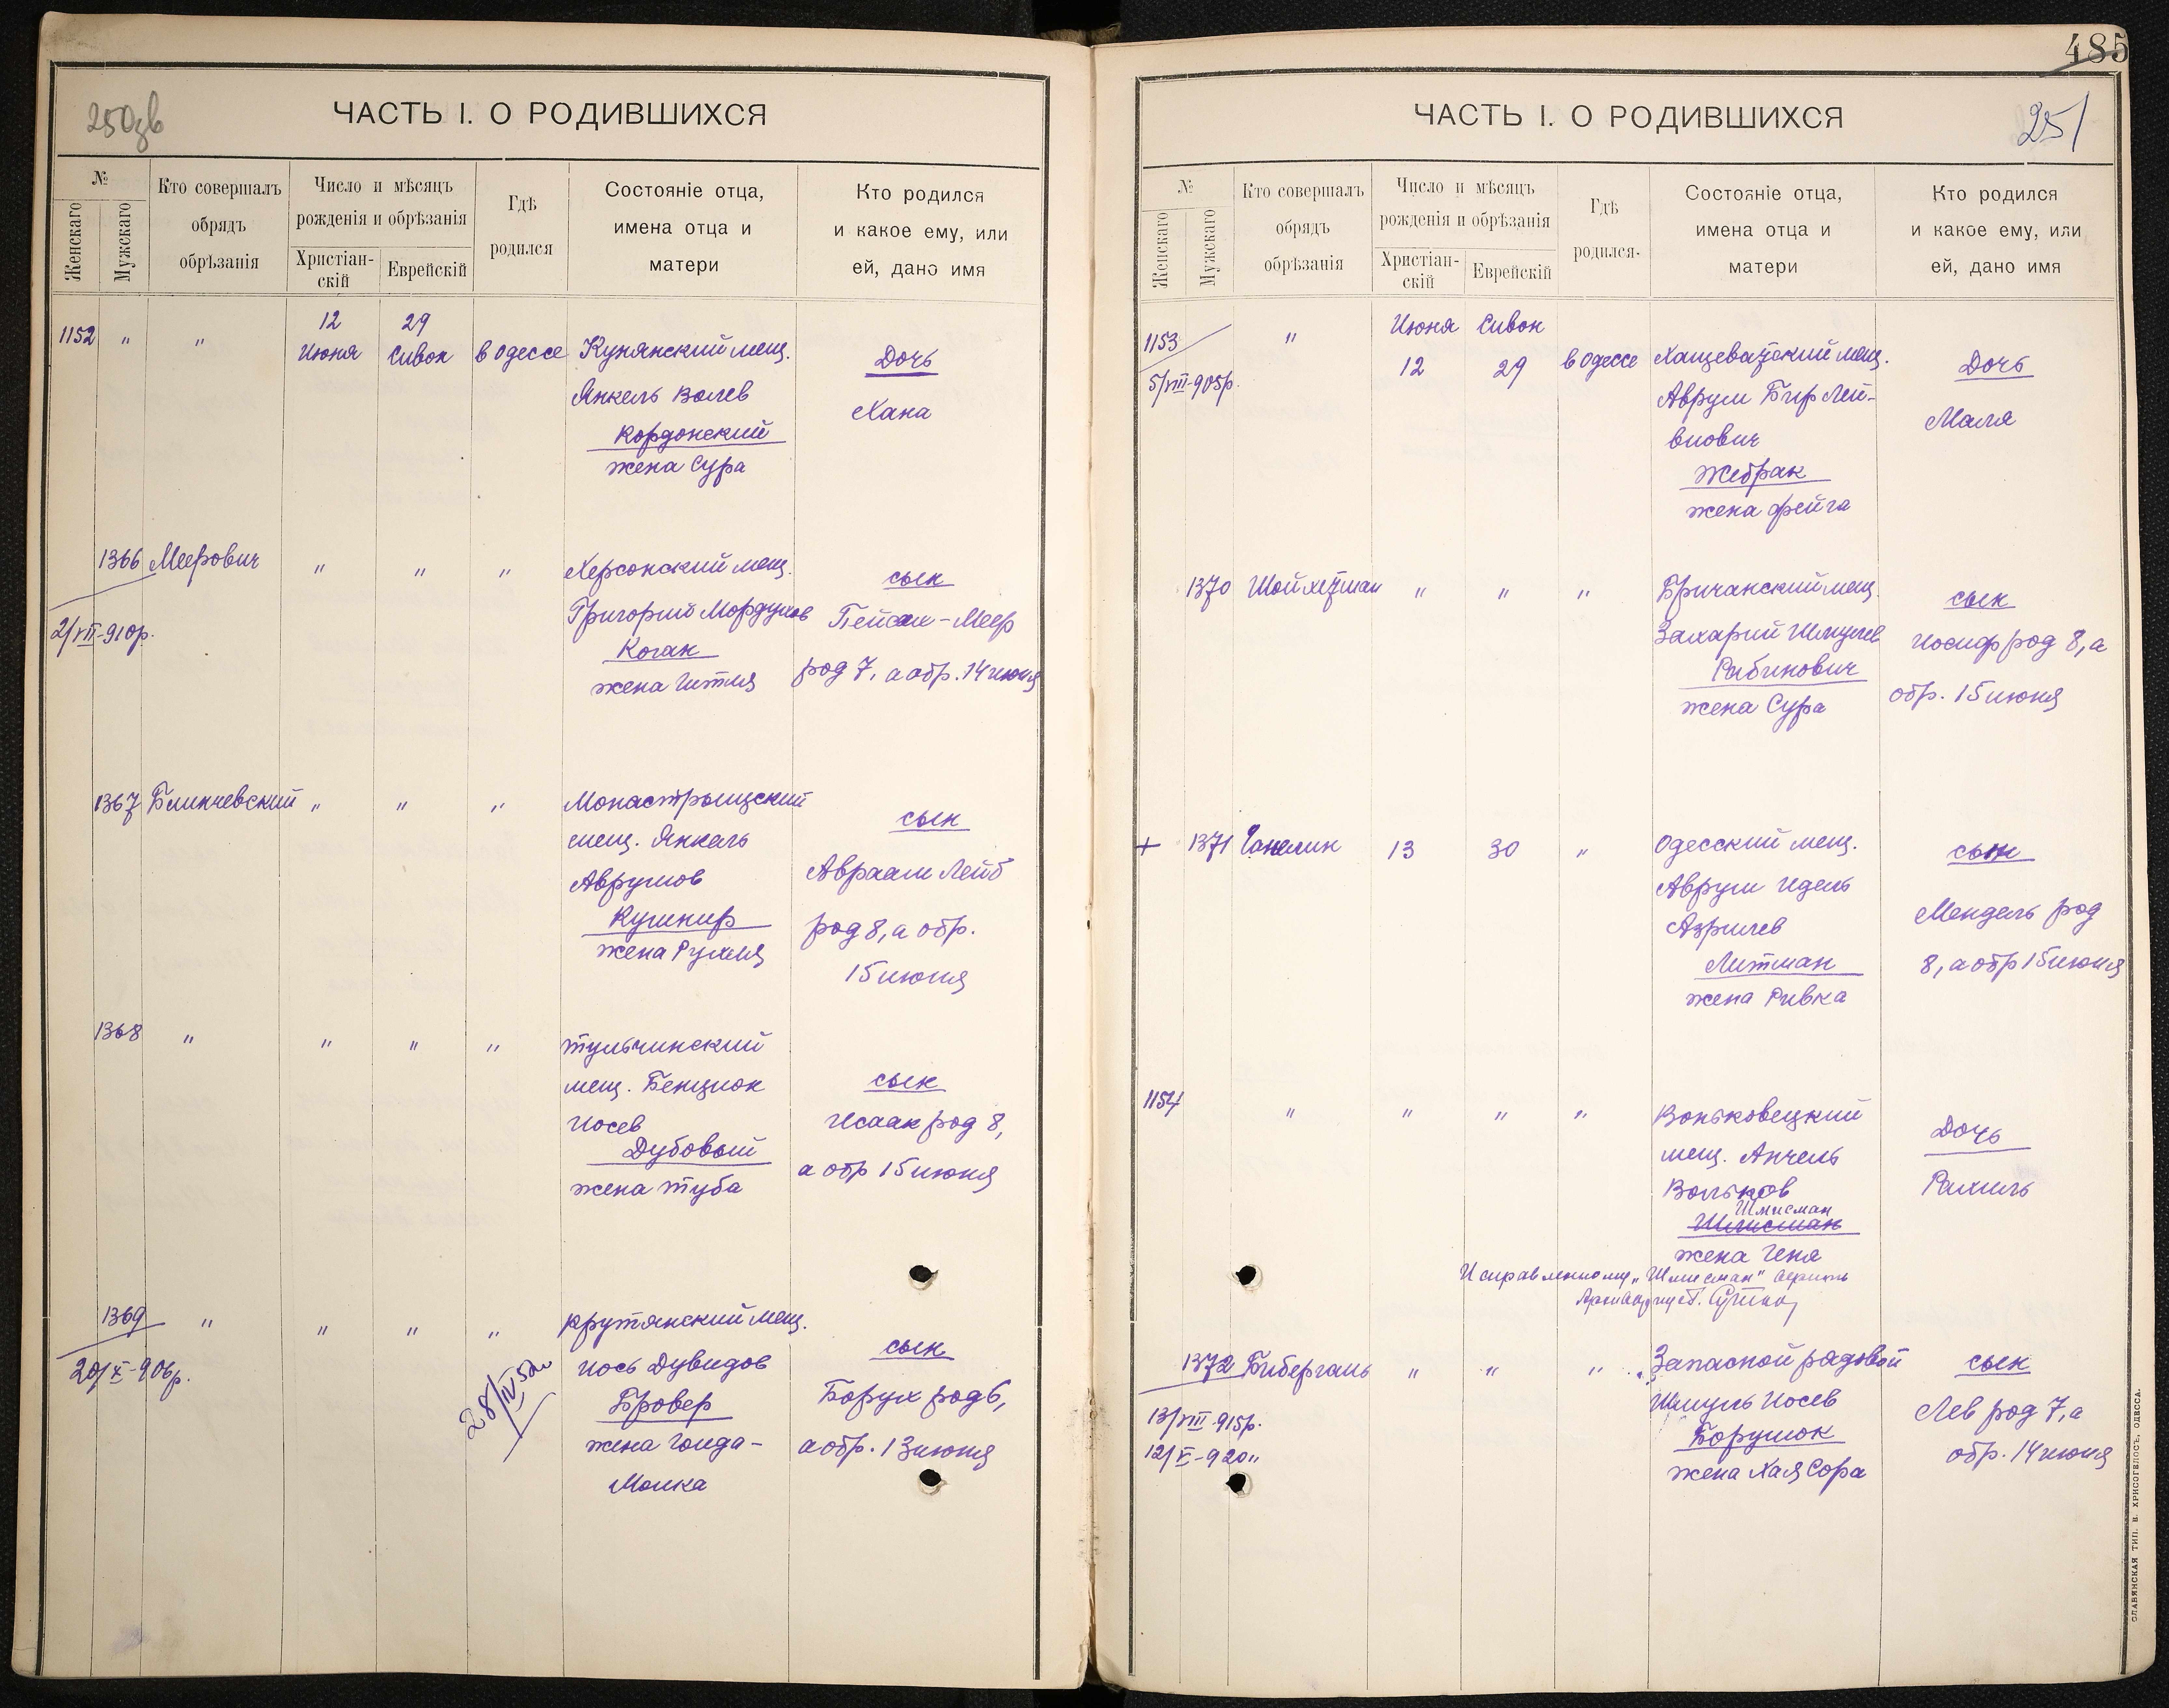 250зв
ЧАСТЬ I. О РОДИВШИХСЯ
№
Женскаго
Мужскаго
Кто совершалъ
обрядъ
обрѣзанія
Число и мѣсяцъ
рожденія и обрѣзанія
Христіан-
скій
Еврейскій
Гдѣ
родился
Состояніе отца,
имена отца и
матери
Кто родился
и какое ему, или
ей, дано имя
1152 " "
12
Июня
29
Сивон
в Одессе
Кунянский мещ.
Янкель Волев
Кордонский
жена Сура
Дочь
Хана
1366 Меерович " " "
2/VII-910р.
Херсонский мещ.
Григорий Мордухов
Коган
жена Гитля
сын
Пейсах-Меер
род 7, а обр. 14 июня
1367 " " "
Монастрыщский
мещ. Янкель
Аврумов
Кушнир
жена Рухля
сын
Авраам Лейб
род 8, а обр.
15 июня
1368 " " " "
Тульчинский
мещ. Бенцион
Иосев
Дубовый
жена Туба
сын
Исаак род 8,
а обр 15 июня
1369 " " " "
20/X-906р.
28/IV 52
Крутянский мещ.
Иось Дувидов
Бровер
жена Гольда-
Малка
сын
Борух род 6,
а обр. 13 июня
485
251
ЧАСТЬ I. О РОДИВШИХСЯ
№
Женскаго
Мужскаго
Кто совершалъ
обрядъ
обрѣзанія
Число и мѣсяцъ
рожденія и обрѣзанія
Христіан-
скій
Еврейскій
Гдѣ
родился.
Состояніе отца,
имена отца и
матери
Кто родился
и какое ему, или
ей, дано имя
1153 "
5/VIII-905р.
Июня
12
Сивон
29
в Одессе
Хащеватский мещ.
Аврум Бер Лей-
виович
Жебрак
жена Фейга
Дочь
Маля
1370 Шойхетман " " "
Бричанский мещ.
Захарий Шмулев
Рабинович
жена Сура
сын
Иосиф род 8, а
обр. 15 июня
+ 1371 13 30 "
Одесский мещ.
Аврум Идель
Азрилев
Литман
жена Ривка
сын
Мендель род
8, а обр 15 июня
1154 " " " "
Воньковецкий
мещ. Анчель
Вольков
Шмисман
жена Геня
Исправленному „Шмисман" верить
Дочь
Рахиль
1372 Биберталь " " "
13/VIII-915р.
12/X-920 "
Запасной рядовой
Шмуль Иосев
Борушок
жена Хая Сора
сын
Лев род 7, а
обр. 14 июня
СЛАВЯНСКАЯ ТИП. Н. ХРИСОГЕЛОСЪ, ОДЕССА.